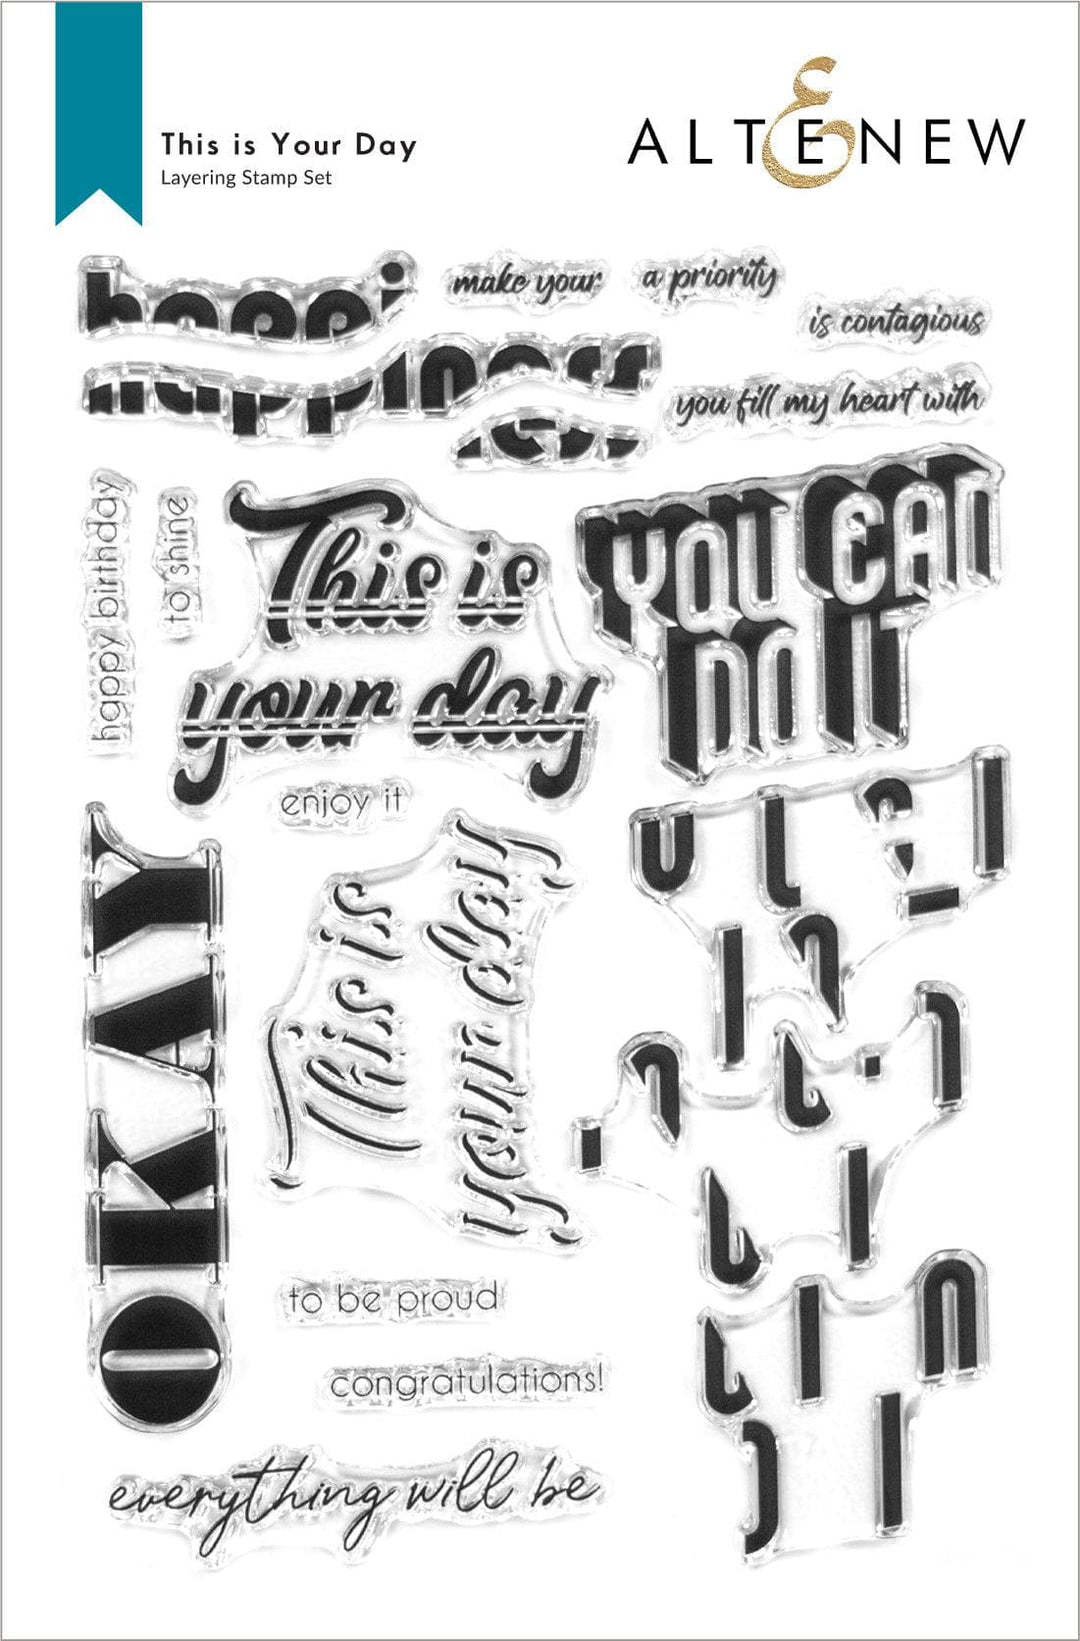 This is Your Day
Layering Stamp Set
ALTENEW
make your
a priority
is contagious
you fill my heart with
happy birthday
to shine
This is
your day
YOU CAN
DO IT
enjoy it
OKAY
This is
your day
to be proud
congratulations!
everything will be